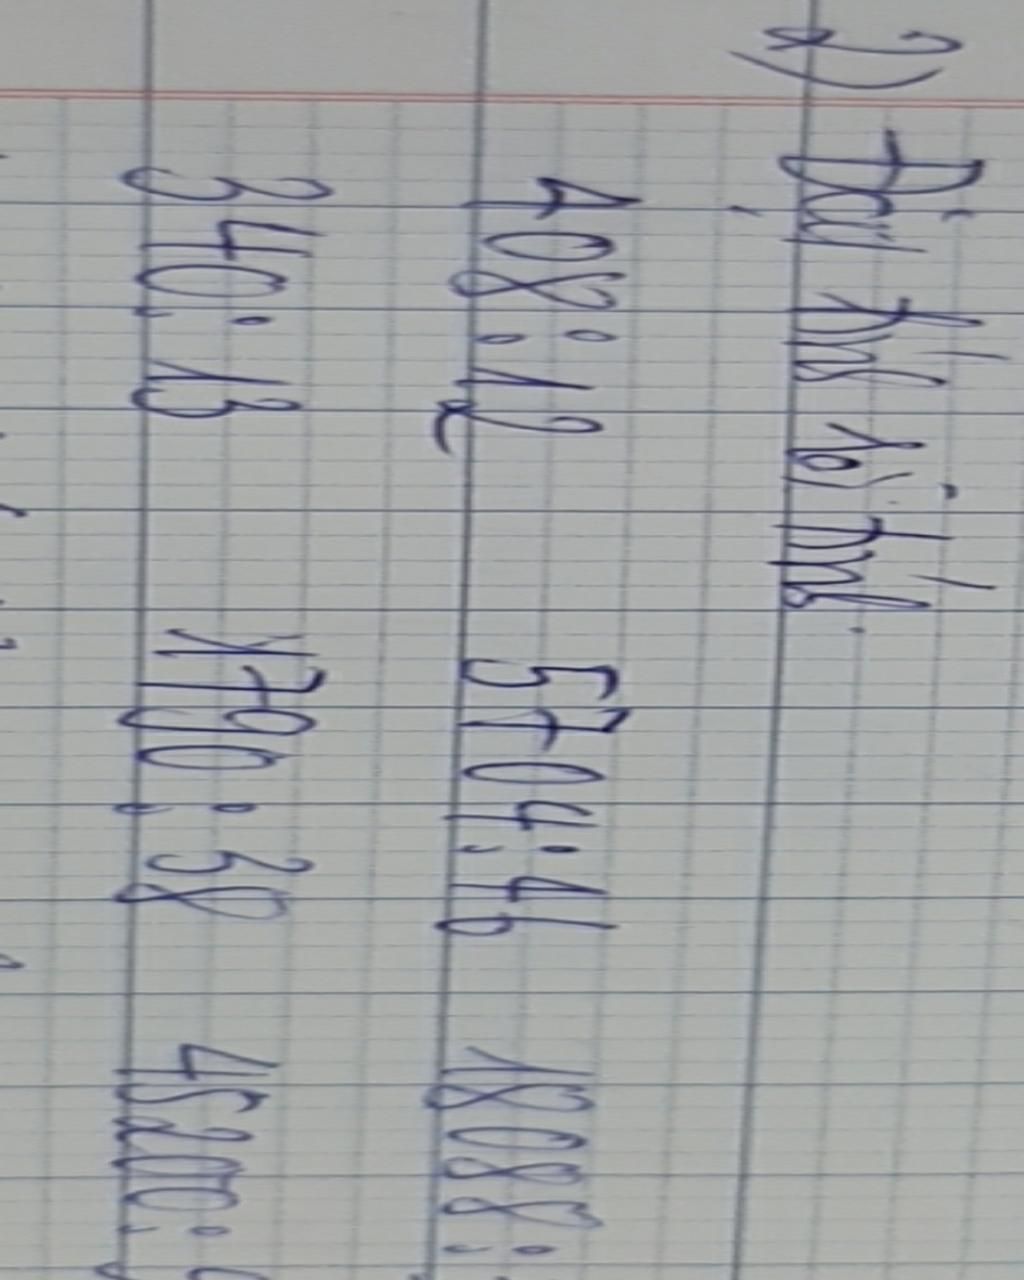 2) Đặt tính rồi tính.
408 : 12 5704 : 46 18088 :
340 : 13 1790 : 38 45200 :